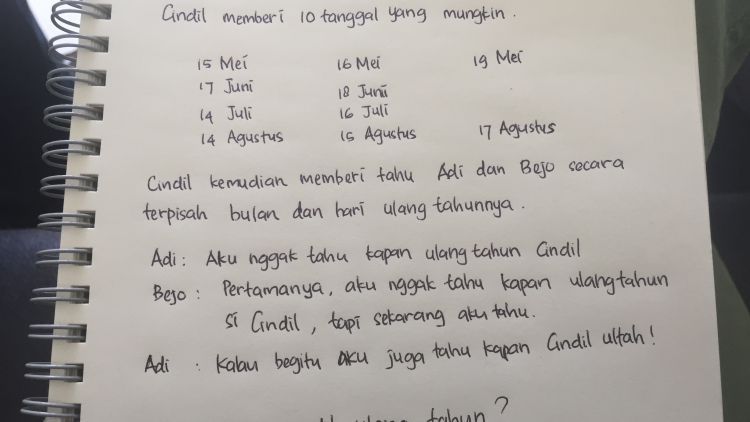 Cindil memberi 10 tanggal yang mungkin.
15 Mei 16 Mei 19 Mei
17 Juni 18 Juni
14 Juli 16 Juli
14 Agustus 15 Agustus 17 Agustus
Cindil kemudian memberi tahu Adi dan Bejo secara
terpisah bulan dan hari ulang tahunnya.
Adi : Aku nggak tahu kapan ulang tahun Cindil
Bejo : Pertamanya, aku nggak tahu kapan ulang tahun
si Cindil, tapi sekarang aku tahu.
Adi : Kalau begitu aku juga tahu kapan Cindil ultah!
tahun?